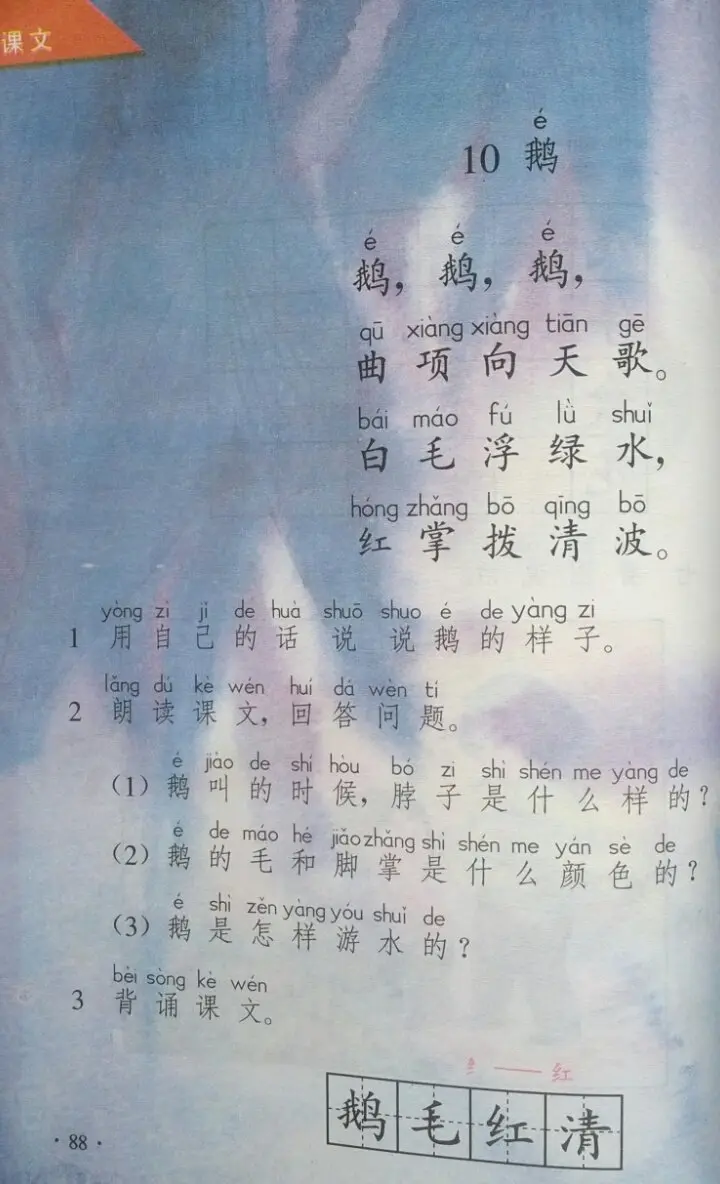 课文
é
10 鹅
é é é
鹅，鹅，鹅，
qū xiàng xiàng tiān gē
曲项向天歌。
bái máo fú lǜ shuǐ
白毛浮绿水，
hóng zhǎng bō qīng bō
红掌拨清波。
yòng zì jǐ dé huà shuō shuo é de yàng zi
1 用自己的话说说鹅的样子。
lǎng dú kè wén huí dá wèn tí
2 朗读课文，回答问题。
é jiào de shí hòu bó zi shì shén me yàng de
（1）鹅叫的时候，脖子是什么样的？
é de máo hé jiǎo zhǎng shì shén me yán sè de
（2）鹅的毛和脚掌是什么颜色的？
é shì zěn yàng yóu shuǐ de
（3）鹅是怎样游水的？
bèi sòng kè wén
3 背诵课文。
纟 —— 红
鹅 毛 红 清
·88·